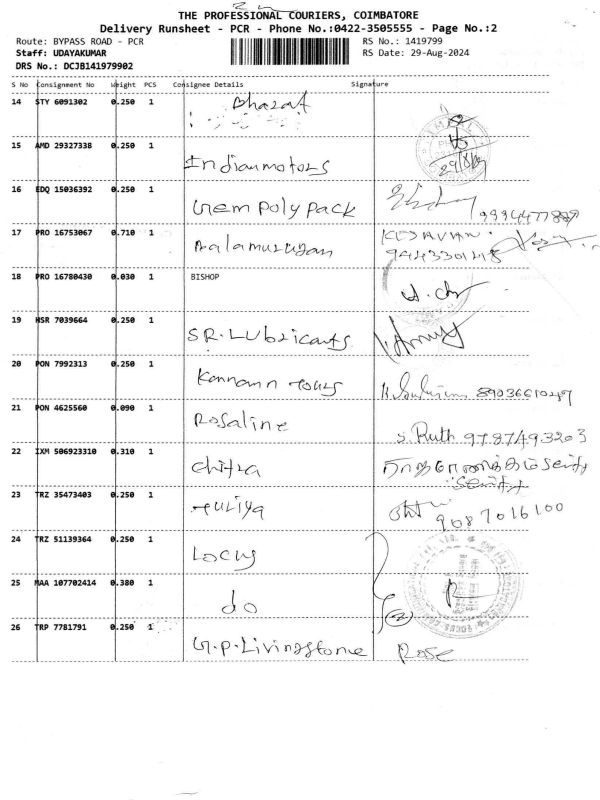 THE PROFESSIONAL COURIERS, COIMBATORE
Delivery Runsheet - PCR - Phone No.:0422-3505555 - Page No.:2
Route: BYPASS ROAD - PCR RS No.: 1419799
Staff: UDAYAKUMAR RS Date: 29-Aug-2024
DRS No.: DCJB141979902
S No Consignment No Weight PCS Consignee Details Signature
14 STY 6091302 0.250 1 Bharat
15 AMD 29327338 0.250 1 Indianmotors
16 EDQ 15036392 0.250 1 Gem poly pack
17 PRO 16753067 0.710 1 Balamurugan KESAVAN.
9443301218
18 PRO 16780430 0.030 1 BISHOP
19 HSR 7039664 0.250 1 SR. Lubricants
20 PON 7992313 0.250 1 Kannann Tours
21 PON 4625560 0.090 1 Rosaline S. Ruth 9787493203
22 IXM 506923310 0.310 1 Chitra
23 TRZ 35473403 0.250 1 9087016100
24 TRZ 51139364 0.250 1 Locus
25 MAA 107702414 0.380 1 do
26 TRP 7781791 0.250 1 G.P. Livingstone Rose